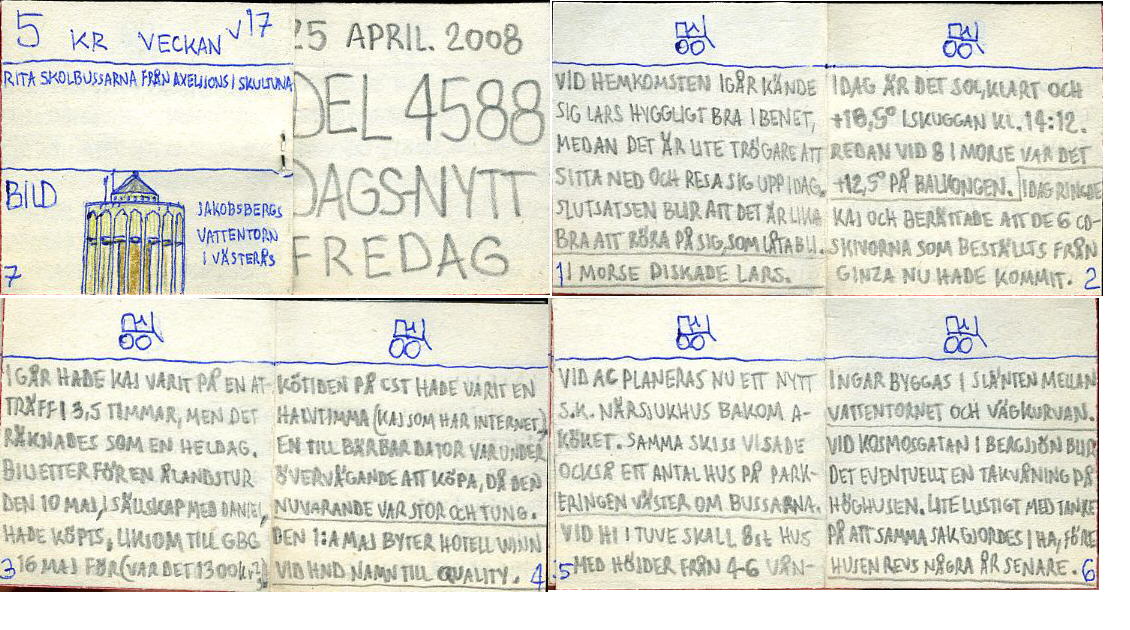 5 KR VECKAN v17
RITA SKOLBUSSARNA FRÅN AXELSSONS I SKULTUNA
BILD
JAKOBSBERGS
VATTENTORN
I VÄSTERÅS
7
25 APRIL. 2008
DEL 4588
DAGS-NYTT
FREDAG
VID HEMKOMSTEN IGÅR KÄNDE
SIG LARS HYGGLIGT BRA I BENET,
MEDAN DET ÄR LITE TRÖGARE ATT
SITTA NED OCH RESA SIG UPP IDAG.
SLUTSATSEN BLIR ATT DET ÄR LIKA
BRA ATT RÖRA PÅ SIG, SOM LÅTA BLI.
1 I MORSE DISKADE LARS.
IDAG ÄR DET SOL, KLART OCH
+18,5° I SKUGGAN KL. 14:12.
REDAN VID 8 I MORSE VAR DET
+12,5° PÅ BALKONGEN. IDAG RINGDE
KAJ OCH BERÄTTADE ATT DE 6 CD-
SKIVORNA SOM BESTÄLLTS FRÅN
GINZA NU HADE KOMMIT. 2
IGÅR HADE KAJ VARIT PÅ EN AT-
TRÄFF I 3,5 TIMMAR, MEN DET
RÄKNADES SOM EN HELDAG.
BILJETTER FÖR EN ÅLANDSTUR
DEN 10 MAJ, I SÄLLSKAP MED DANIEL,
HADE KÖPTS, LIKSOM TILL GBG
3 16 MAJ FÖR (VAR DET 1300 kr?)
KÖTIDEN PÅ CST HADE VARIT EN
HALVTIMMA (KAJ SOM HAR INTERNET)
EN TILL BÄRBAR DATOR VAR UNDER
ÖVERVÄGANDE ATT KÖPA, DÅ DEN
NUVARANDE VAR STOR OCH TUNG.
DEN 1:A MAJ BYTER HOTELL WINN
VID HND NAMN TILL QUALITY. 4
VID AC PLANERAS NU ETT NYTT
S.K. NÄRSJUKHUS BAKOM A-
KÖKET. SAMMA SKISS VISADE
OCKSÅ ETT ANTAL HUS PÅ PARK-
ERINGEN VÄSTER OM BUSSARNA.
VID HI I TUVE SKALL 8 st HUS
5 MED HÖJDER FRÅN 4-6 VÅN-
INGAR BYGGAS I SLÄNTEN MELLAN
VATTENTORNET OCH VÄGKURVAN.
VID KOSMOSGATAN I BERGSJÖN BLIR
DET EVENTUELLT EN TAKVÅNING PÅ
HÖGHUSEN. LITE LUSTIGT MED TANKE
PÅ ATT SAMMA SAK GJORDES I HA, FÖRE
HUSEN REVS NÅGRA ÅR SENARE. 6